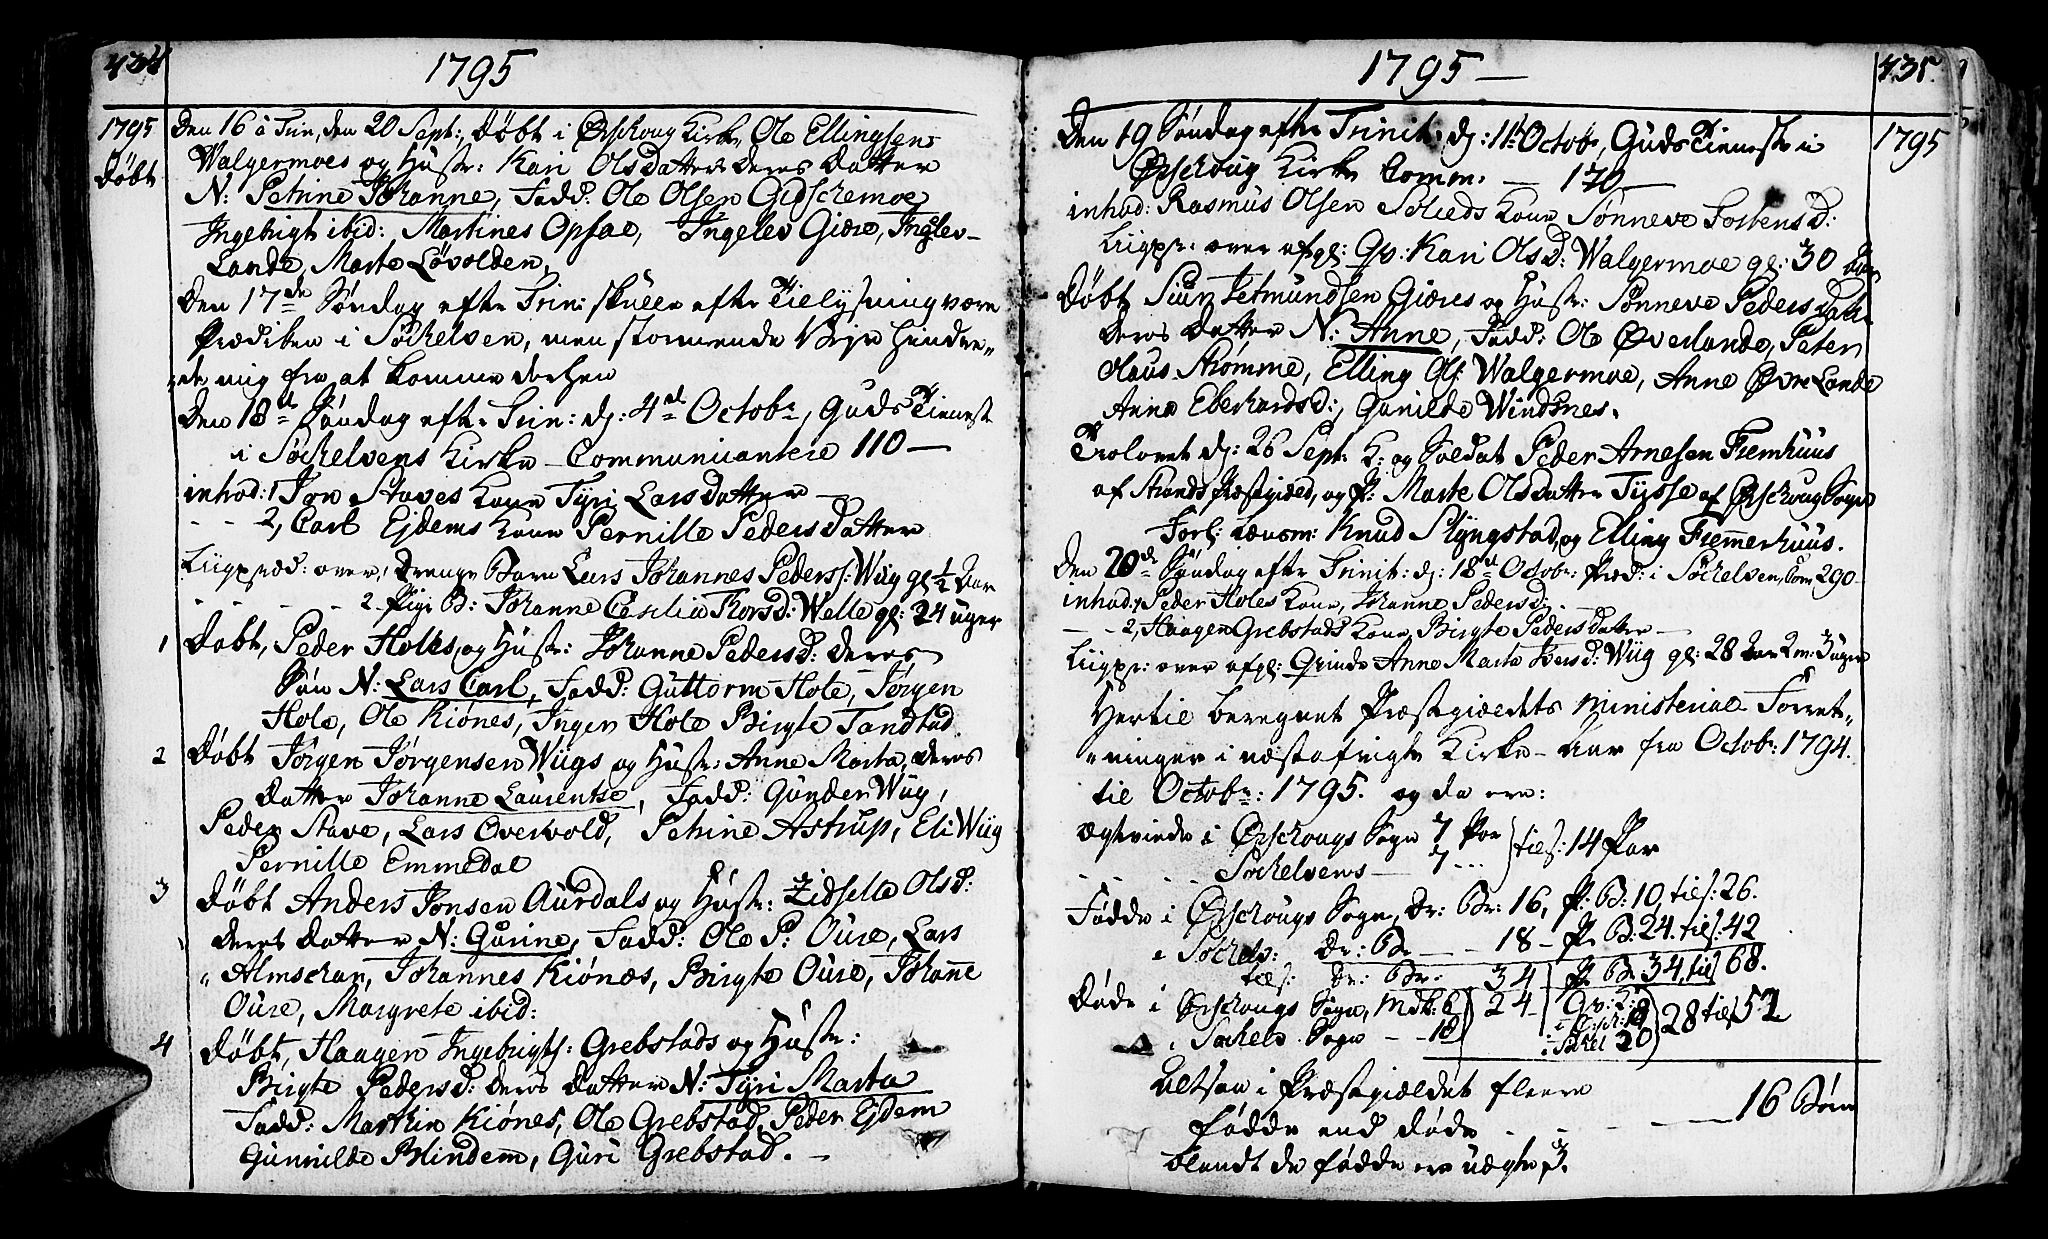 434
1795
1795
Døbt
Den 16 à Trin, den 20 Sept:, Døbt i Ørschoug Kirke, Ole Ellingsen
Walgermoes og Hustr: Kari Olsdatter deres Datter
N: Petrine Johanne, Fadd: Ole Olsen Gidschemoe
Ingebrigt ibid: Martines Opsal, Ingelev Giære, Ingelev
Lande, Marte Løvolden,
Den 17de Søndag efter Trin: skulle efter Tillysning være
Prædiken i Søchelven, men stormende Vejr hindre„
„de mig fra at komme derhen
Den 18de Søndag efter Trin: d: 4de Octobr, Guds Tieneste
i Søchelvens Kirke – Communicantere 110 –
inhod: 1 Jon Staves Kone Tyri Larsdatter –
- - 2, Carl Ejdems Kone Pernille Pedersdatter
Liigpræd: over, Drenge Barn Lars Johannes Peders: Wiig gl: 1/2 Aar
- - - - - 2 Pige B: Johanne Cecilia Thorsd: Welle gl: 24 uger
1 Døbt, Peder Holes, og Hustr: Johanne Pedersd: deres
Søn N: Lars Carl, Fadd: Guttorm Hole, Jørgen
Hole, Ole Kiønes, Inger Hole Birgte Tandstad
2 Døbt Jørgen Jørgensen Wiigs og Hustr: Anne Marta, deres
Datter Johanne Laurentse, Fadd: Gunder Wiig,
Peder Stave, Lars Overvold, Petrine Astrup, Eli Wiig
Pernille Emmedal
3 Døbt Anders Jonsen Aurdals og Hustr: Zidselle Olsd:
deres Datter N: Gurine, Fadd: Ole P: Oure, Lars
„Almschar, Johannes Kiønes, Birgte Oure, Johanne
Oure, Margrete ibid:
4 Døbt, Haagen Ingebrigts: Grebstads og Hustr:
Birgte Pedersd: deres Datter N: Tyri Marta
Fadd: Marthin Kiønes, Ole Grebstad, Peder Ejdem
Gunnilde Blindem, Guri Grebstad. –
1795 –
435.
1795
Den 19 Søndag efter Trinit: d: 11te Octobr, Guds Tieneste i
Ørschoug Kirke Comm: – 170 –
inhod: Rasmus Olsen Solleds Kone Sønneve Tostensd:
Liigpr: over afgl: Qv: Kari Olsd: Walgermoe gl: 30 Aar
Døbt Siur Jetmundsen Giæres og Hustr: Sønneve Peders Datter
deres Datter N: Anne, Fadd: Ole Øverlande, Peter
Olaus Strømme, Elling Ols: Walgermoe, Anne Øvre Lande
Anna Eberhardsd:, Gunilde Windsnes.
Trolovet d: 26 Sept: K: og Soldat Peder Arnesen Fremhuus
af Strands Præstegield, og P: Marte Olsdatter Tysse af Ørschoug Sogn
Forl: Lænsm: Knud Slyngstad, og Elling Fremmerhuus.
Den 20de Søndag efter Trinit: d: 18de Octobr: Præd: i Søchelven, Com 290
inhod: 1, Peder Holes Kone, Johanne Pedersd:
- - 2, Haagen Grebstads Kone, Birgte Pedersdatter –
Liigpr: over afgl: Qvinde Anne Marta Iversd: Wiig gl: 28 Aar 2 m: 3 uger
Hertil beregnet Præstegieldets Ministerial Forret„
„ninger i næstafvigte Kirke-Aar fra Octobr: 1794.
til Octobr: 1795. og da ere:
Ægteviede i Ørschougs Sogn 7 Par
- - - - Søchelvens – 7 - - - } tils: 14 Par
Fødde i Ørschougs Sogn, Dr: Br: 16, P: B: 10, tils: 26.
i Søchelv: Dr: Br – 18 – P B: 24. tils: 42
tils: Dr: Br: 34 P B: 34, tils 68.
Døde i Ørschougs Sogn, Mdk: 6
i Søchelv. Sogn - - 18 } 24 – Qv: K:
i Ørsch: 8
i Søchel 20 } 28 tils 52
Altsaa i Præstegieldet fleere
fødde end døde - - - – 16 Børn
blandt de fødde ere uægte 3.